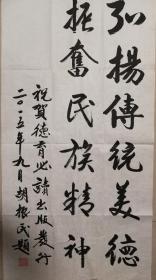 弘揚傳統美德
振奮民族精神
祝賀德育必讀出版發行
二〇一五年九月胡振民題